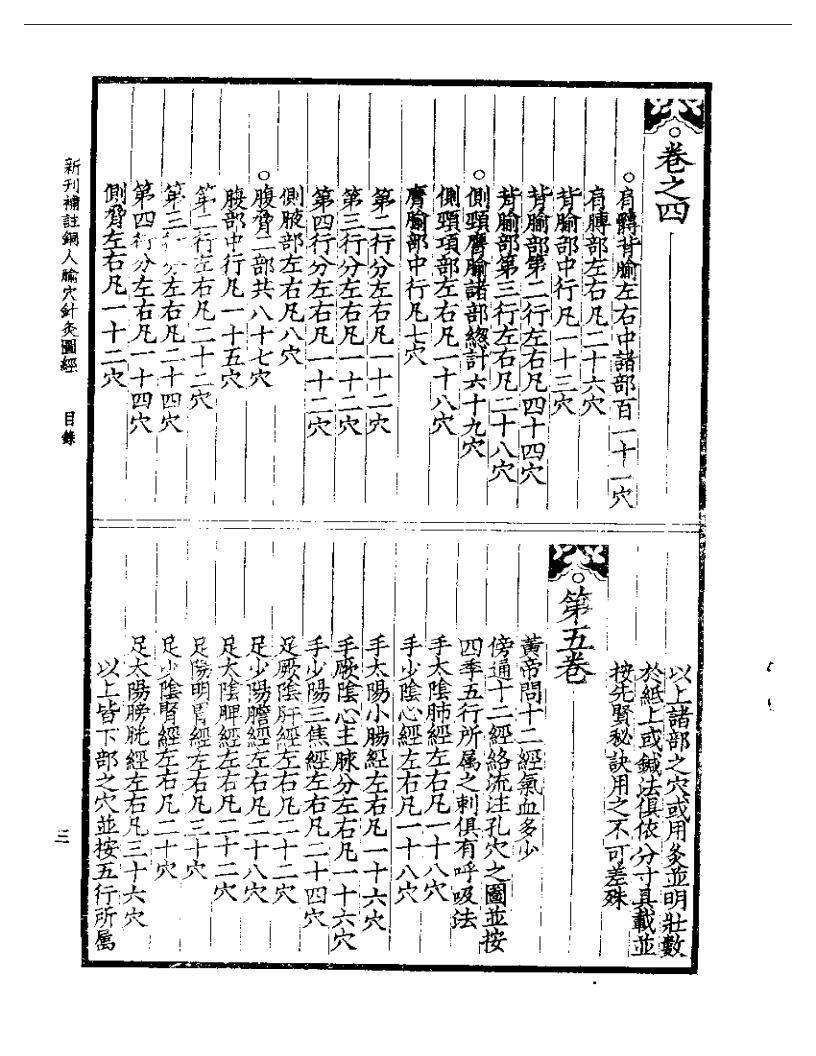 ○卷之四
○肩髆背腧左右中諸部百一十一穴
肩膊部左右凡二十六穴
背腧部中行凡一十三穴
背腧部第二行左右凡四十四穴
背腧部第三行左右凡二十八穴
○側頸膺腧諸部緫計六十九穴
側頸項部左右凡一十八穴
膺腧部中行凡七穴
第二行分左右凡一十二穴
第三行分左右凡一十二穴
第四行分左右凡一十二穴
側腋部左右凡八穴
○腹脅二部共八十七穴
腹部中行凡一十五穴
第二行左右凡二十二穴
第三行分左右凡二十四穴
第四行分左右凡一十四穴
側脅左右凡一十二穴
以上諸部之穴或用灸並明壯數
於紙上或鍼法俱依分寸具載並
按先賢秘訣用之不可差殊
○第五卷
黃帝問十二經氣血多少
傍通十二經絡流注孔穴之圖並按
四季五行所属之刺俱有呼吸法
手太陰肺經左右凡一十八穴
手少陰心經左右凡一十八穴
手太陽小腸經左右凡一十六穴
手厥陰心主脉分左右凡一十六穴
手少陽三焦經左右凡二十四穴
足厥陰肝經左右凡二十二穴
足少陽膽經左右凡二十八穴
足太陰脾經左右凡二十二穴
足陽明胃經左右凡三十穴
足少陰腎經左右凡二十穴
足太陽膀胱經左右凡三十六穴
以上皆下部之穴並按五行所屬
新刊補註銅人腧穴針灸圖經 目錄
三